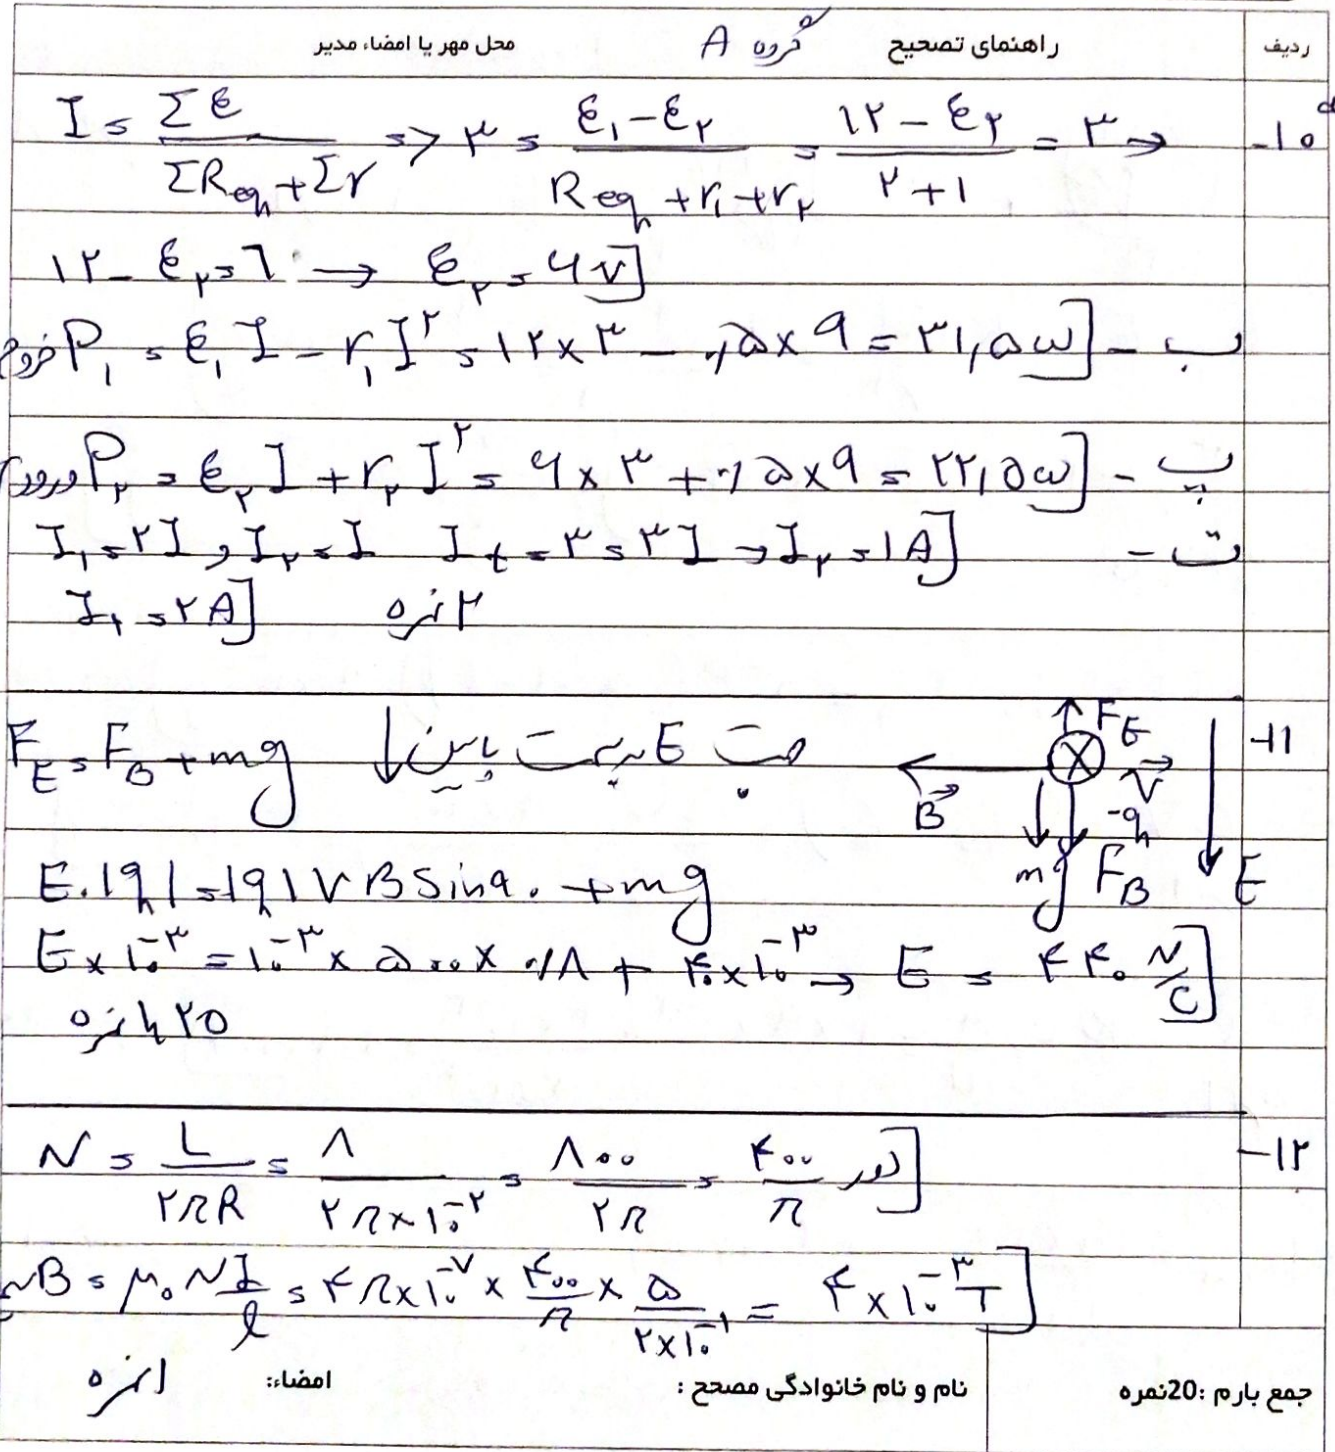 ردیف راهنمای تصحیح گروه A محل مهر یا امضاء مدیر
۱۰- I = Σε / ΣReq + Σr => ۳ = ε₁ - ε₂ / Req + r₁ + r₂ = ۱۲ - ε₂ / ۲+۱ = ۳ →
۱۲ - ε₂ = ٦ → ε₂ = ۶V]
ب - P₁ = ε₁I - r₁I² = ۱۲×۳ - ۰,۵×۹ = ۳۱,۵w]
پ - P₂ = ε₂I + r₂I² = ۶×۳ + ۰,۵×۹ = ۲۲,۵w]
ت - I₁ = ۲I , I₂ = I Iₜ = ۳ = ۳I → I₂ = ۱A]
I₁ = ۲A] ۲ نمره
۱۱- F_E = F_B + mg جهت E به سمت پایین ↓ B⃗ F_E V⃗ -q mg F_B E
E.|q| = |q|VB Sin۹۰ + mg
E×۱۰⁻³ = ۱۰⁻³ × ۵۰۰ × ۰,۸ + ۴۰×۱۰⁻³ → E = ۴۴۰ N/C]
۱۲- N = L / ۲πR = ۸ / ۲π×۱۰⁻² = ۸۰۰ / ۲π = ۴۰۰ / π دور]
B = μ₀NI / l = ۴π×۱۰⁻⁷ × ۴۰۰/π × ۵ / ۲×۱۰⁻¹ = ۴×۱۰⁻³T]
۱ نمره
جمع بارم :20نمره نام و نام خانوادگی مصحح : امضاء: